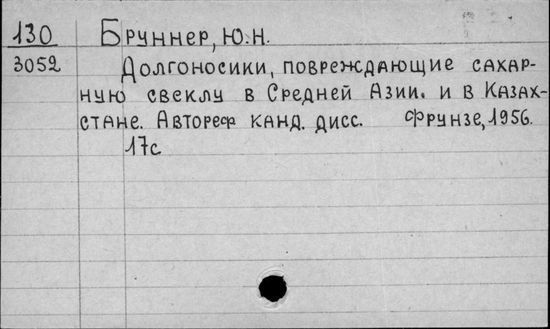 130 Бруннер, Ю.Н.
3052 Долгоносики, повреждающие сахар-
ную свеклу в Средней Азии. и в Казах-
стане. Автореф канд. дисс. Фрунзе, 1956.
17с